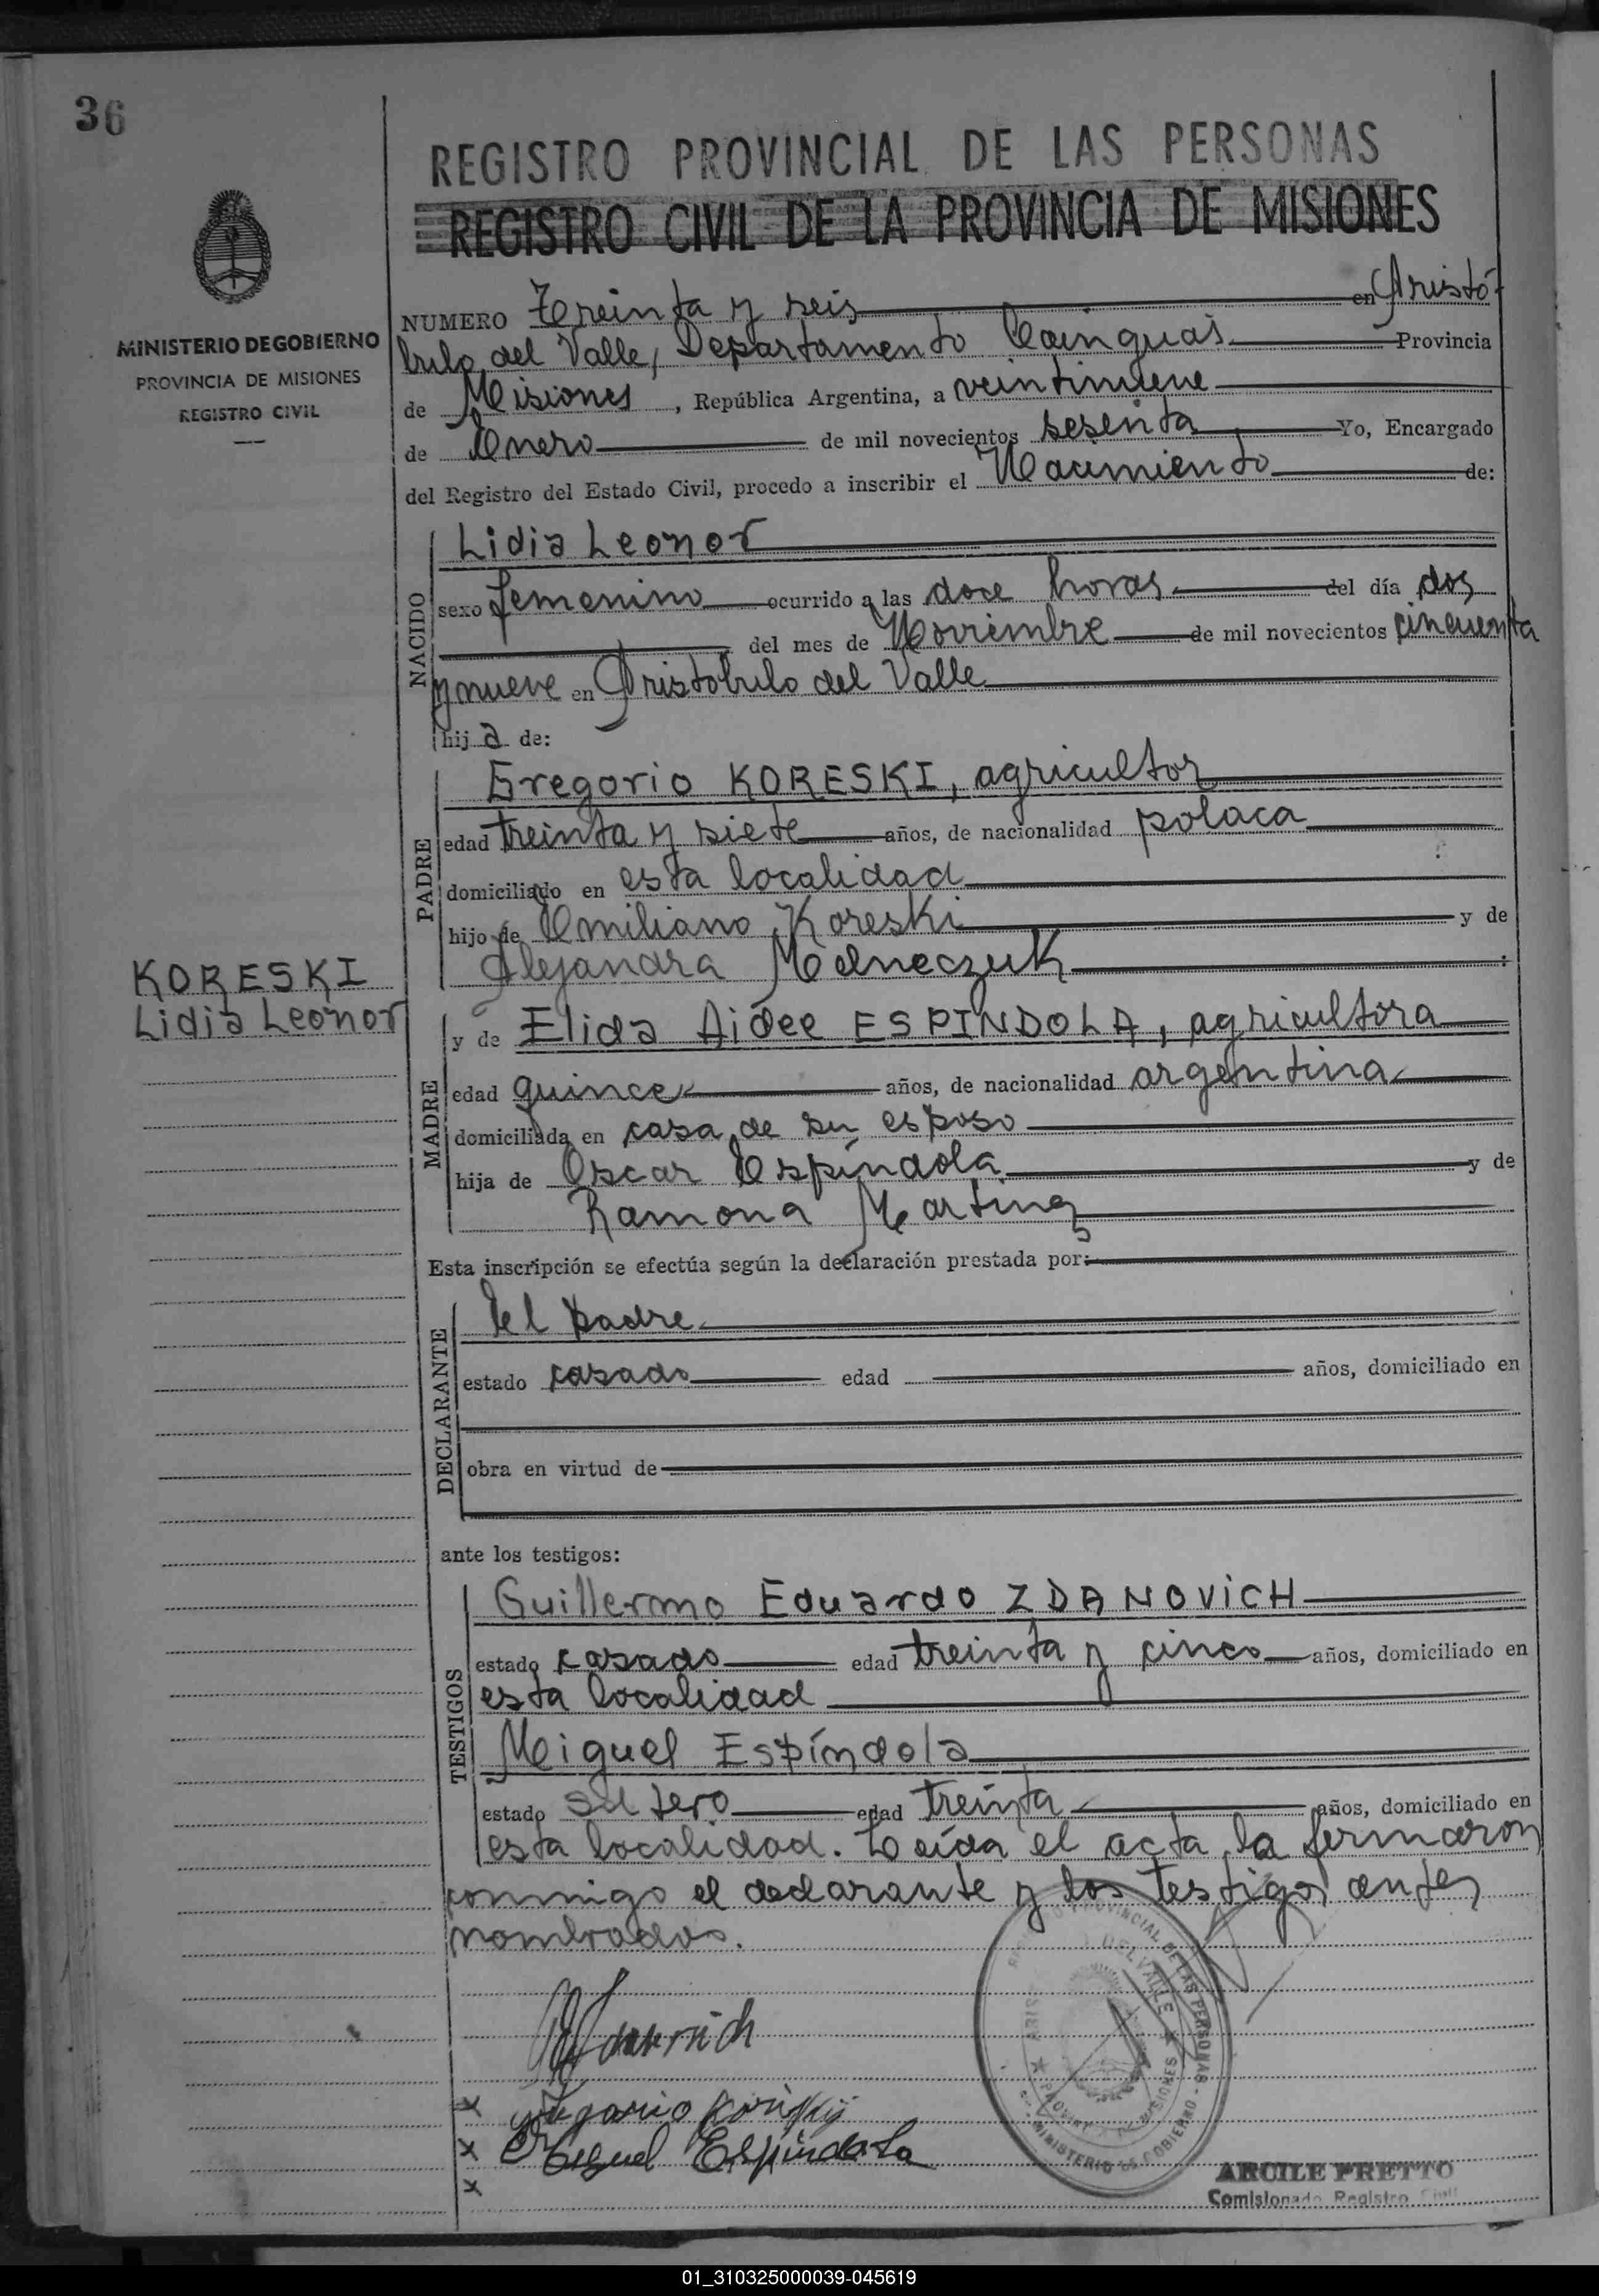 36
REGISTRO PROVINCIAL DE LAS PERSONAS
REGISTRO CIVIL DE LA PROVINCIA DE MISIONES
MINISTERIO DE GOBIERNO
PROVINCIA DE MISIONES
REGISTRO CIVIL
NUMERO Treinta y seis en Aristó-
bulo del Valle, Departamento Cainguás Provincia
de Misiones, República Argentina, a veintinueve
de Enero de mil novecientos sesenta Yo, Encargado
del Registro del Estado Civil, procedo a inscribir el Nacimiento de:
NACIDO
Lidia Leonor
sexo femenino ocurrido a las doce horas del día dos
del mes de Noviembre de mil novecientos cincuenta
y nueve en Aristóbulo del Valle
hija de:
PADRE
Gregorio KORESKI, agricultor
edad treinta y siete años, de nacionalidad polaca
domiciliado en esta localidad
hijo de Emiliano Koreski y de
Alejandra Melneczuk
KORESKI
Lidia Leonor
MADRE
y de Elida Aidee ESPINDOLA, agricultora
edad quince años, de nacionalidad argentina
domiciliada en casa de su esposo
hija de Oscar Espíndola y de
Ramona Martinez
Esta inscripción se efectúa según la declaración prestada por:
DECLARANTE
El padre
estado casado edad años, domiciliado en
obra en virtud de
ante los testigos:
TESTIGOS
Guillermo Eduardo ZDANOVICH
estado casado edad treinta y cinco años, domiciliado en
esta localidad
Miguel Espíndola
estado soltero edad treinta años, domiciliado en
esta localidad. Leída el acta la firmaron
conmigo el declarante y los testigos antes
nombrados.
REGISTRO PROVINCIAL DE LAS PERSONAS - MINISTERIO DE GOBIERNO
DEL VALLE
MISIONES
Miguel Espindola
ARCILE PRETTO
Comisionado Registro Civil
01_310325000039-045619